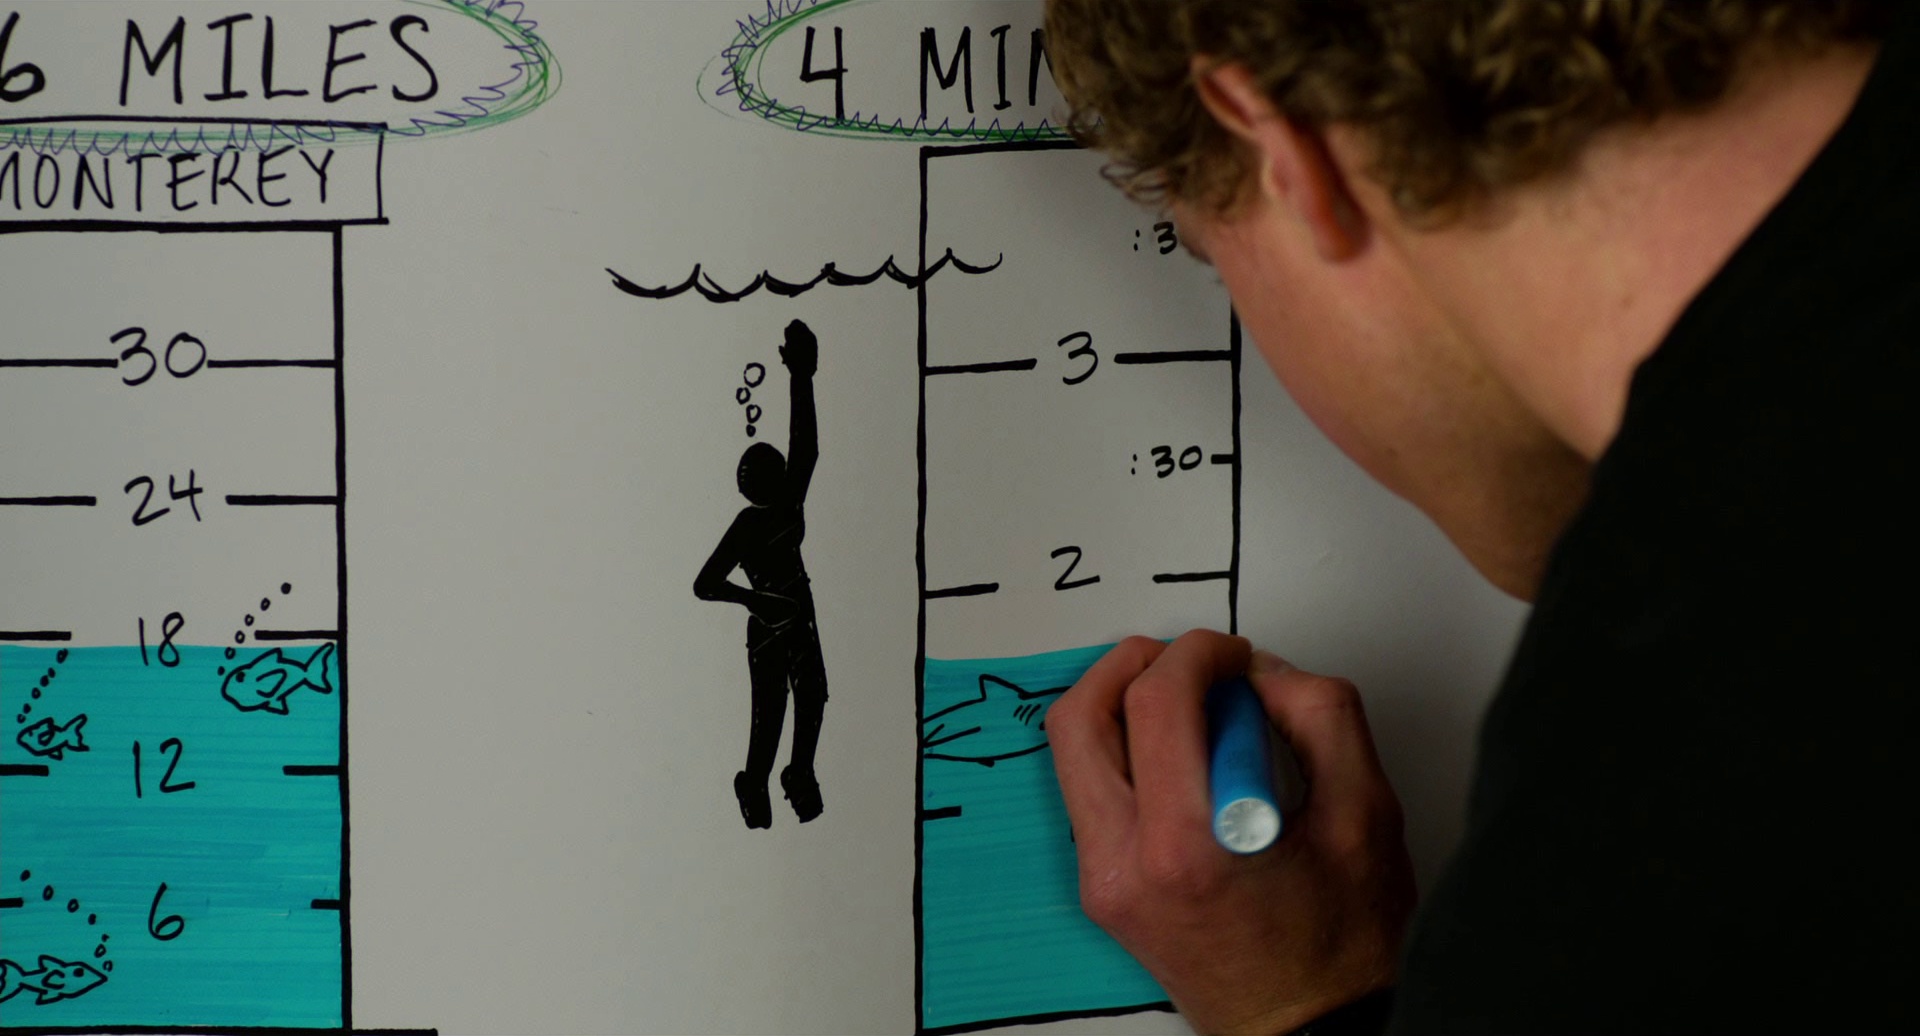 6 MILES
MONTEREY
30
24
18
12
6
4 MIN
:3
3
:30
2